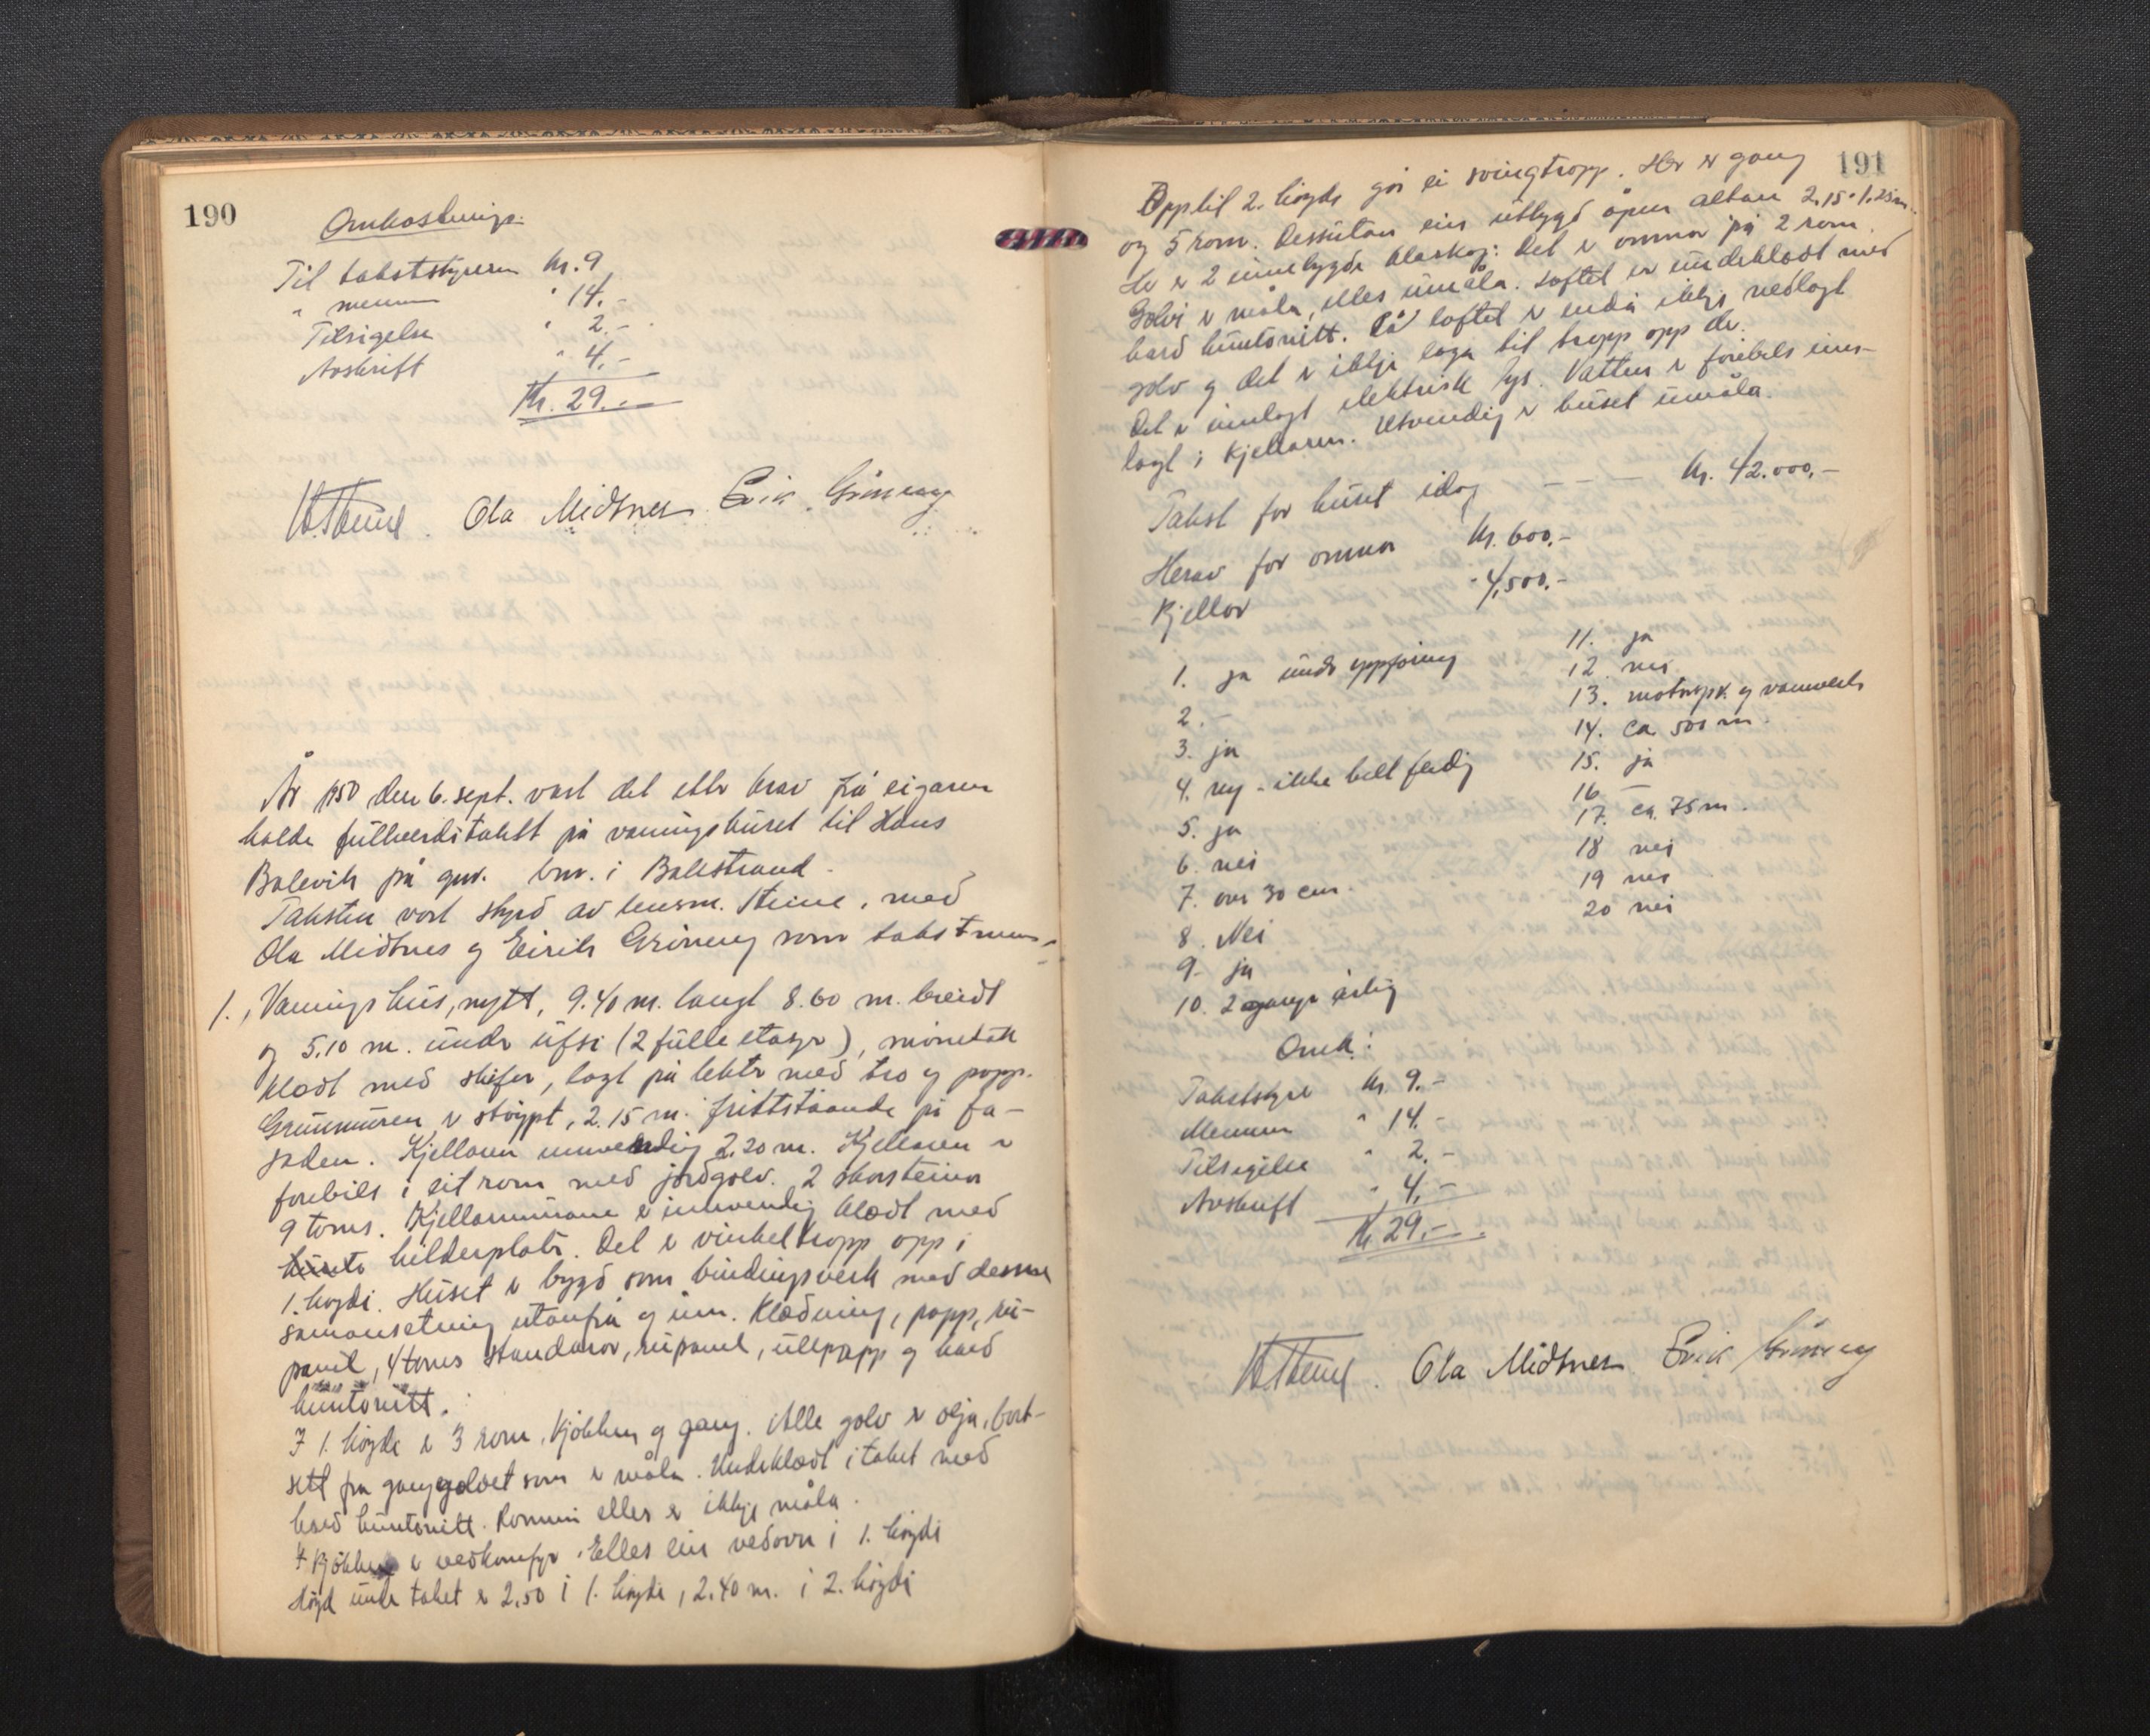 190
Omkostninga:
Til takststyraren kr. 9
" mennene " 14.-
Tilsigelse " 2.-
Avskrift " 4.-
Kr. 29.-
Ola Midtnes Eirik Grinning
År 1950 den 6. sept. vart det etter krav frå eigaren
halde fullverditakst på våningshuset til Hans
Balevik på gnr. bnr. i Balestrand.
Taksten vart styrd av lensm. Steine, med
Ola Midtnes og Eirik Grinning som takstmenn.
1., Våningshus, nytt, 9.40 m. langt 8.60 m. breidt
og 5.10 m. under ufsi (2 fulle etasjer), mønetak
klædt med skifer, lagt på lekter med tro og papp.
Grunnmuren er støypt, 2.15 m. frittståande på fa-
saden. Kjellaren innvendig 2.20 m. Kjellaren er
forebils i eit rom med jordgolv. 2 skorsteinar
9 toms. Kjellarmurane er innvendig klædt med
hunto hilderplater. Det er vinkeltropp opp i
1. høgdi. Huset er bygd som bindingsverk med denne
samansetning utanfrå og inn. Klædning, papp, ru-
panel, 4 toms standarar, rupanel, ullpapp og hard
huntonitt.
I 1. høgde er 3 rom, kjøkken og gang. Alle golv er olja, bort-
sett fra ganggolvet som er måla. Underklædt i taket med
hard huntonitt. Rommi elles er ikkje måla.
I kjøkken er vedkomfyr. Elles ein vedovn i 1. høgdi
Høgd under taket er 2.50 i 1. høgde, 2.40 m. i 2. høgdi
191
Opp til 2. høgde går ei svingtropp. Her er gang
og 5 rom. Dessutan ein utbygd open altan 2.15 · 1.25 m.
Her er 2 innebygde klæskap. Det er omnar på 2 rom.
Golvi er måla, elles umåla. Loftet er underklædt med
hard huntonitt. På loftet er endå ikkje nedlagt
golv og det er ikkje laga til tropp opp der.
Det er innlagt elektrisk lys. Vatten er førebils inn-
lagt i kjellaren. Utvendig er huset umåla.
Takst for huset idag - - - kr. 42.000,-
Herav for omnar kr. 600,-
Kjellar " 4,500.-
1. ja under oppføring
2. -
3. ja
4. ny - ikke helt ferdig
5. ja
6. nei
7. over 30 cm.
8. Nei
9. ja
10. 2 ganger årlig
11. ja
12. nei
13. motorspr. og vannverk
14. ca 500 m.
15. ja
16 -
17. ca. 75 m.
18 nei
19 nei
20 nei
Omk.:
Takststyre kr. 9.-
Mennene " 14.-
Tilsigelse " 2.-
Avskrift " 4.-
Kr 29.-
Ola Midtnes Eirik Grinning